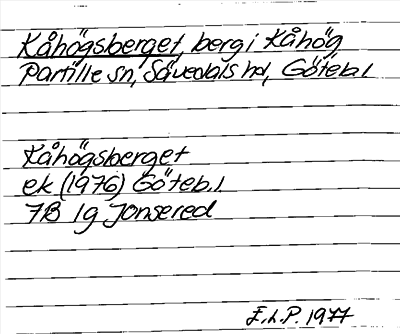 Kåhögsberget, berg i Kåhög
Partille sn, Sävedals hd, Göteb. l
Kåhögsberget
ek (1976) Göteb. l
7B 1g Jonsered
E.L.P. 1977